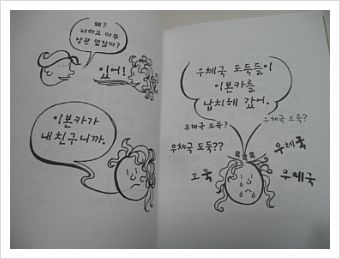 왜?
너하고 아무
상관 없잖아?
있어!
이본카가
내 친구니까.
우체국 도둑들이
이본카를
납치해 갔어.
우체국 도둑?
우체국 도둑?
우체국 도둑??
우체국
도둑
우체국